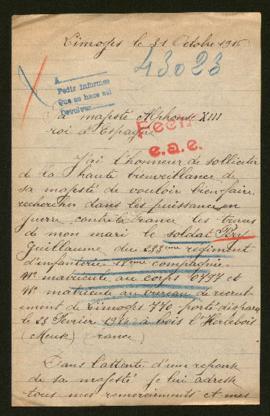 Limoges le 31 Octobre 1916
43023
A
Pedir informes
Que se hace así
Devolver
sa majesté Alphonse XIII
roi d'Espagne
Fech
e.a.e.
J'ai l'honneur de solliciter
de la haute bienveillance de
sa majesté de vouloir bien faire
rechercher dans les puissances en
guerre contre la France les traces
de mon mari le soldat
Guillaume du regiment
d'infanterie compagnie
N° matricule au corps
N° matricule au bureau de recrut
ement de Limoges 770 porté disparu
le 23 Fevrier bois
(Meuse) France
Dans l'attente d'une reponse
de sa majesté je lui adresse
tous mes remerciments et mes